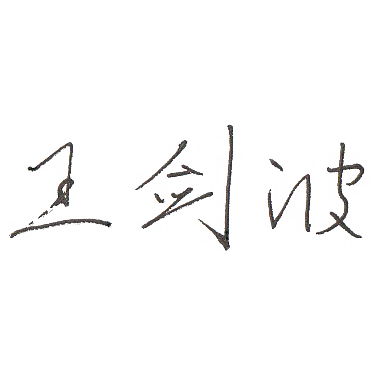 王剑波